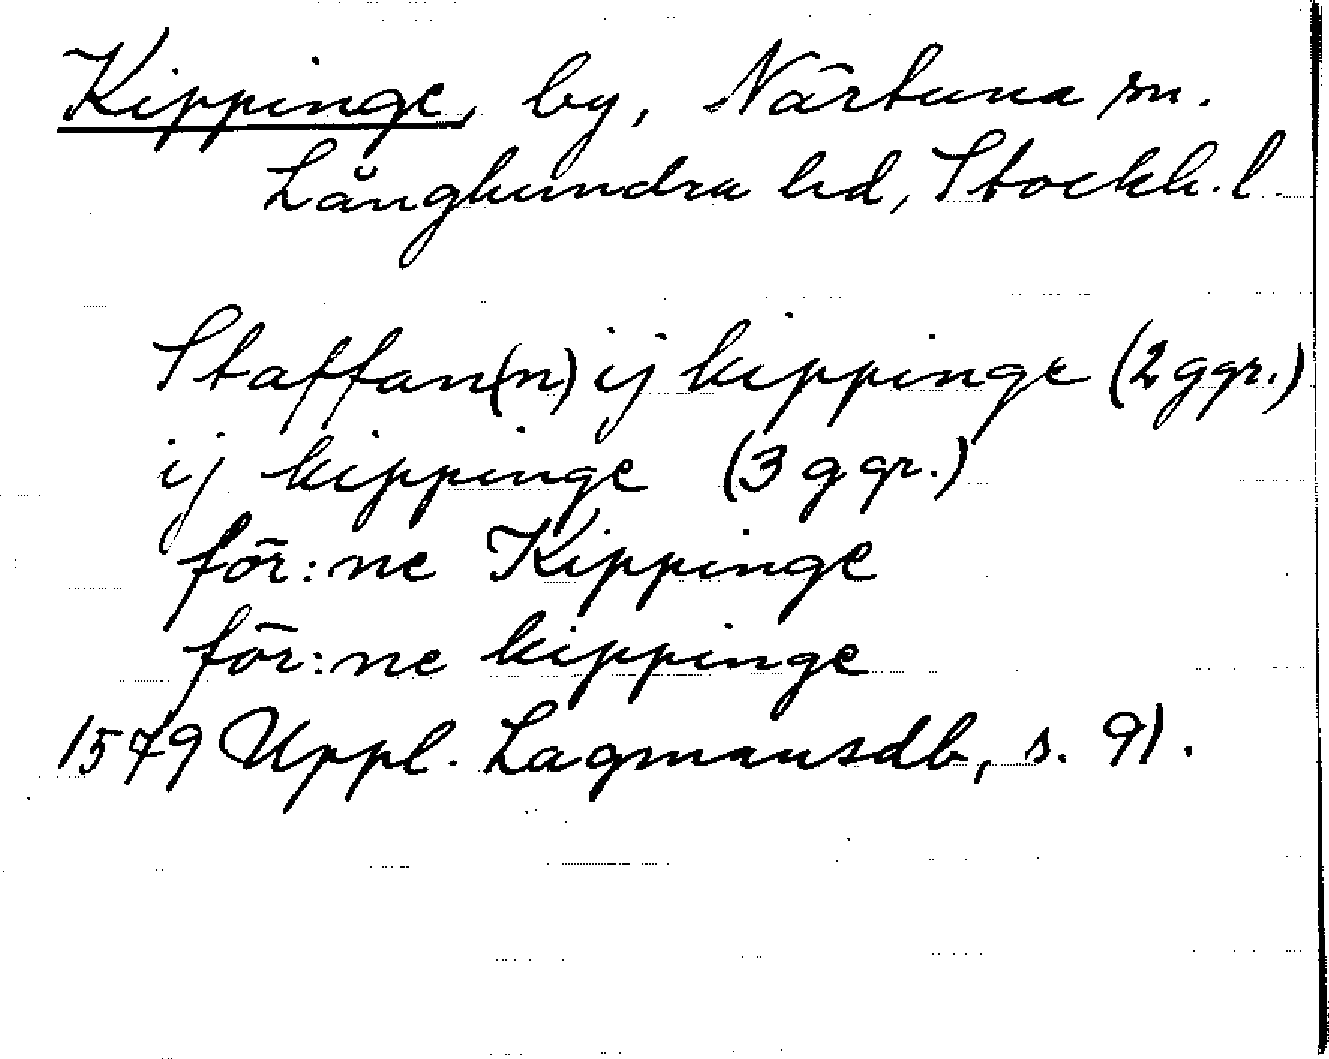 Kippinge, by, Närtuna sn.
Långhundra hd, Stockh. l
Staffan(n) ij kippinge (2 ggr.)
ij kippinge (3 ggr.)
för:ne Kippinge
för:ne kippinge
1579 Uppl. Lagmansdb, s. 91.